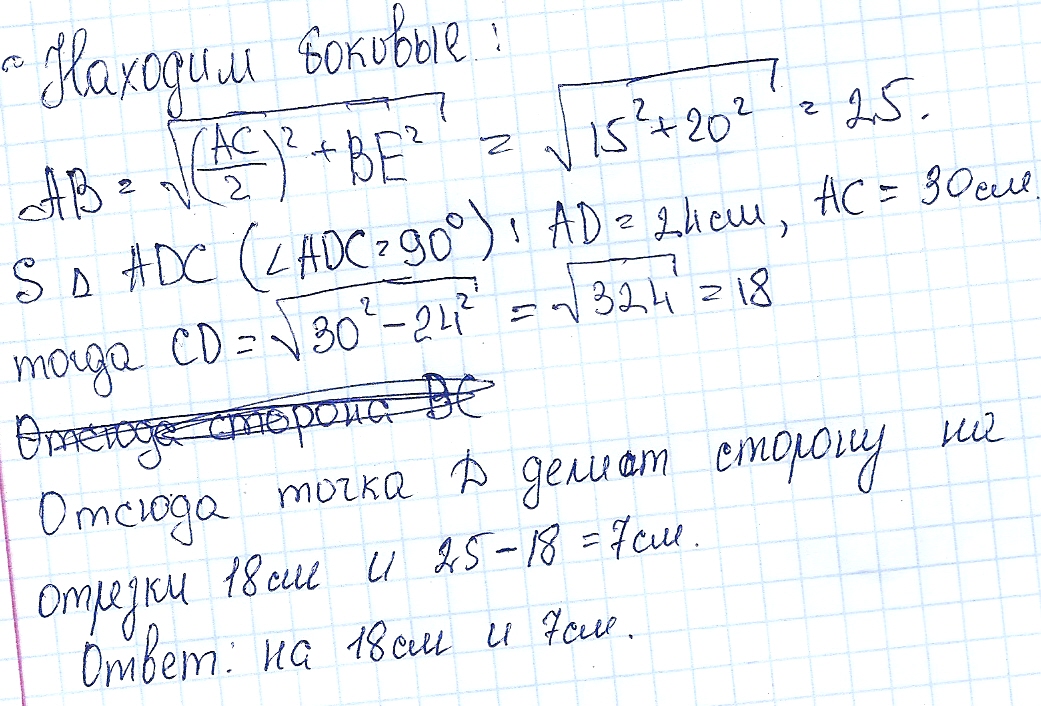 Находим боковые:
AB = √((AC/2)² + BE²) = √(15² + 20²) = 25.
S Δ ADC (∠ADC = 90°): AD = 24см, AC = 30см.
тогда CD = √(30² − 24²) = √324 = 18
Отсюда сторона BC
Отсюда точка D делит сторону на
отрезки 18см и 25 − 18 = 7см.
Ответ: на 18см и 7см.